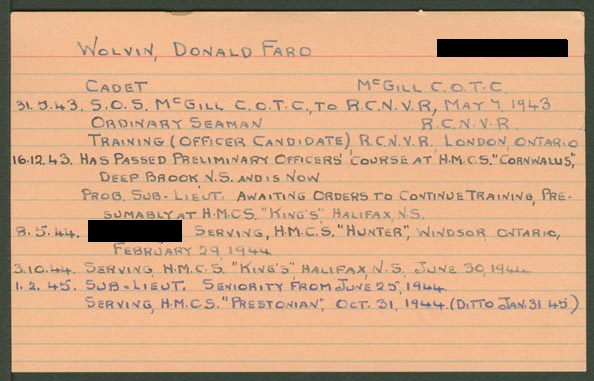 WOLVIN, DONALD FARO
CADET McGILL C.O.T.C.
31.5.43. S.O.S. McGILL C.O.T.C., TO R.C.N.V.R, MAY 7 1943
ORDINARY SEAMAN R.C.N.V.R.
TRAINING (OFFICER CANDIDATE) R.C.N.V.R. LONDON, ONTARIO
16.12.43. HAS PASSED PRELIMINARY OFFICERS' COURSE AT H.M.C.S. "CORNWALLIS",
DEEP BROOK N.S. AND IS NOW
PROB. SUB-LIEUT. AWAITING ORDERS TO CONTINUE TRAINING, PRE-
SUMABLY AT H.M.C.S. "KING'S", HALIFAX, N.S.
8.5.44. SERVING, H.M.C.S. "HUNTER", WINDSOR, ONTARIO,
FEBRUARY 29, 1944
3.10.44. SERVING H.M.C.S. "KING'S" HALIFAX, N.S. JUNE 30, 1944
1.2.45. SUB-LIEUT. SENIORITY FROM JUNE 25, 1944
SERVING, H.M.C.S. "PRESTONIAN", OCT. 31, 1944. (DITTO JAN. 31 45)